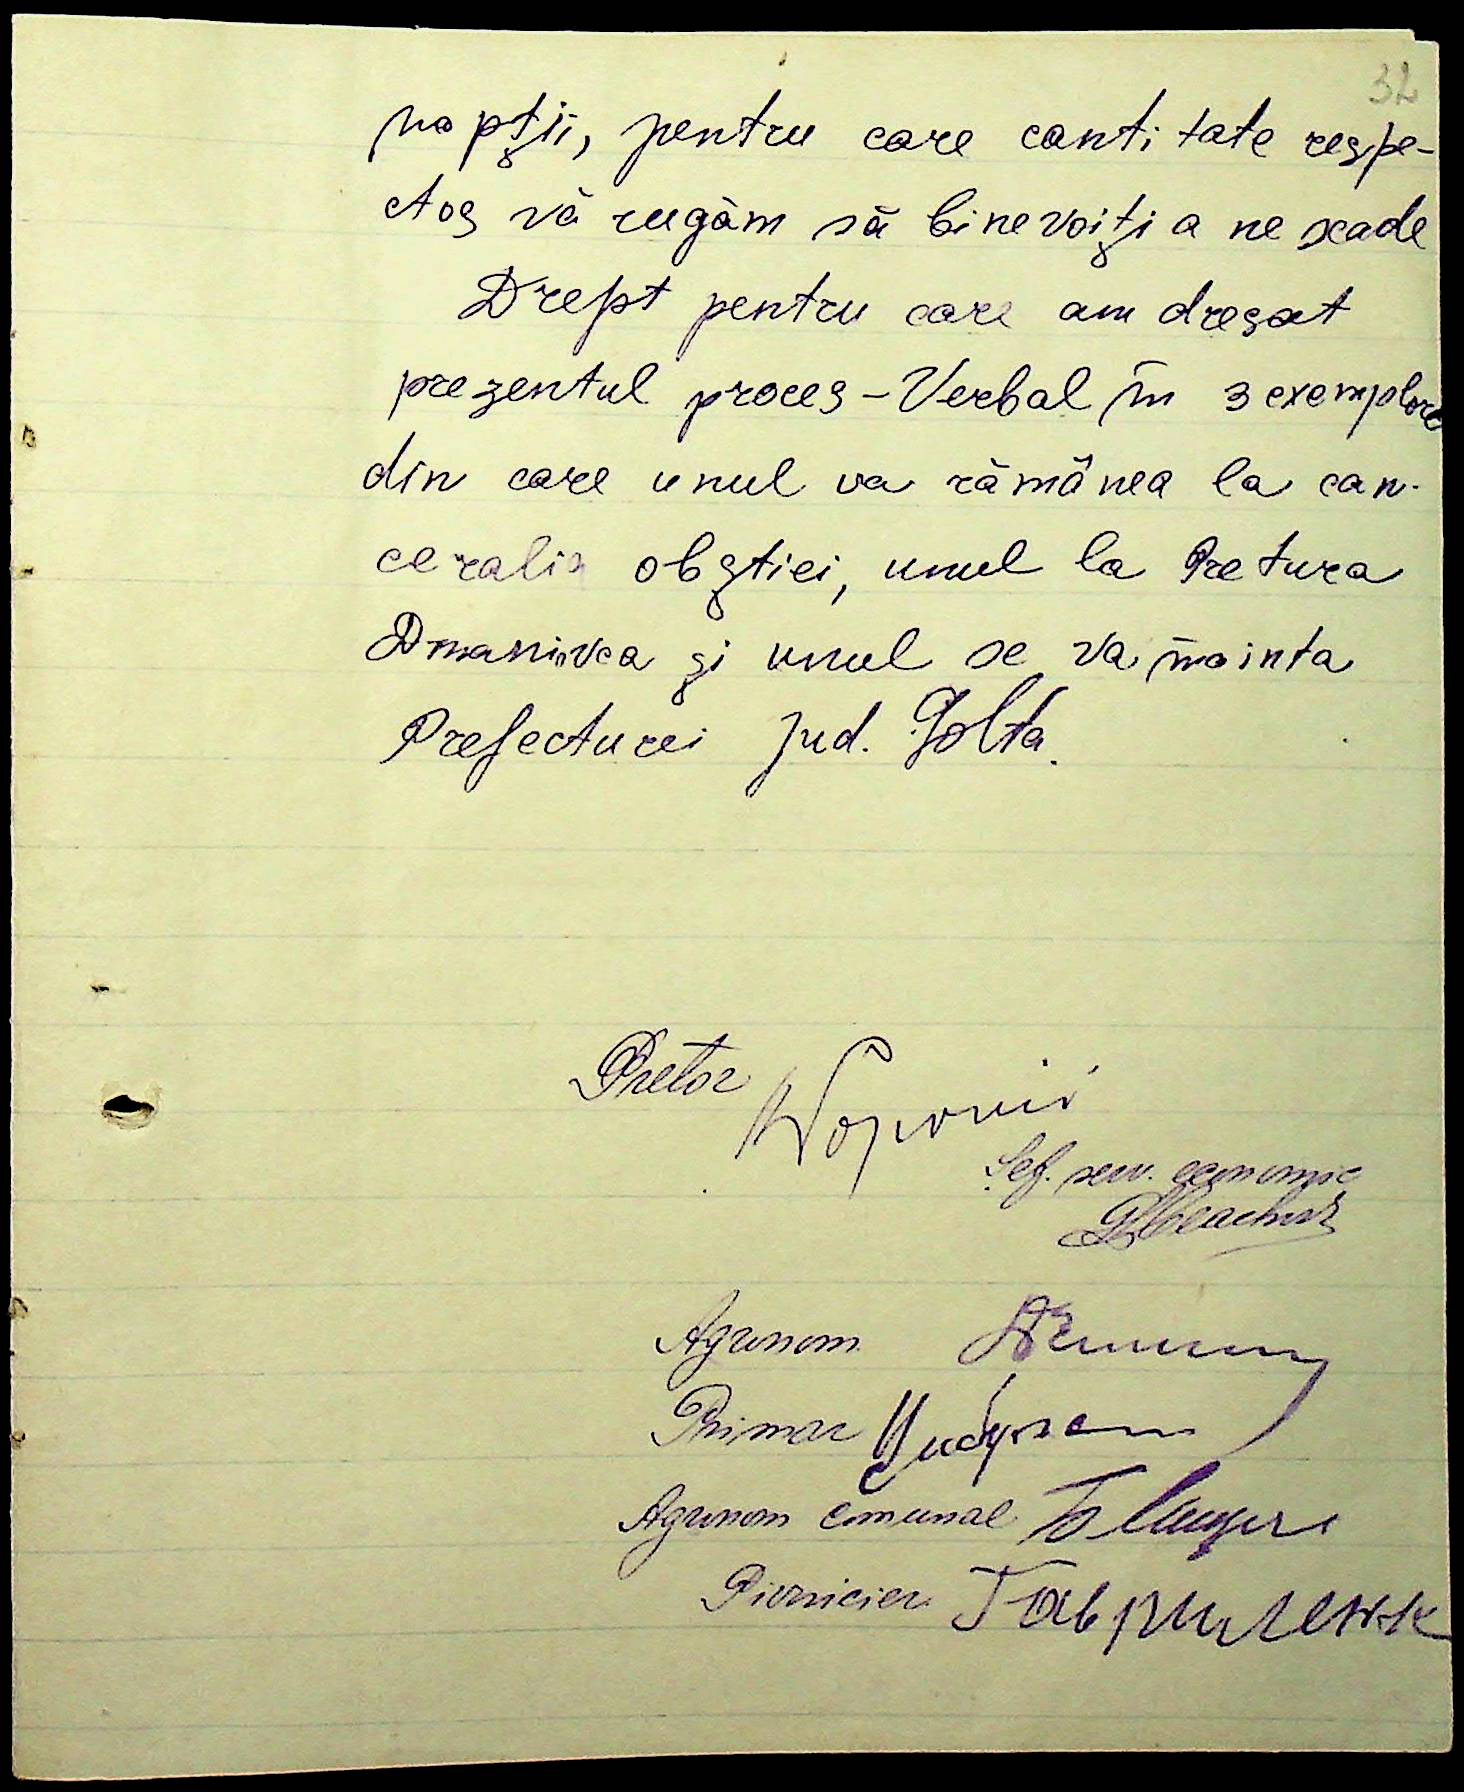 32
nopții, pentru care cantitate respe-
ctos vă rugăm să binevoiți a ne scade
Drept pentru care am dresat
prezentul proces-Verbal în 3 exemplare
din care unul va rămânea la can-
ceralia obștiei, unul la Pretura
Dmaniovca și unul se va înainta
Prefecturei Jud. Golta.
Pretor
Șef. serv. economic
Agronom
Primar
Agronom comunal
Pivnicier Гавриленк